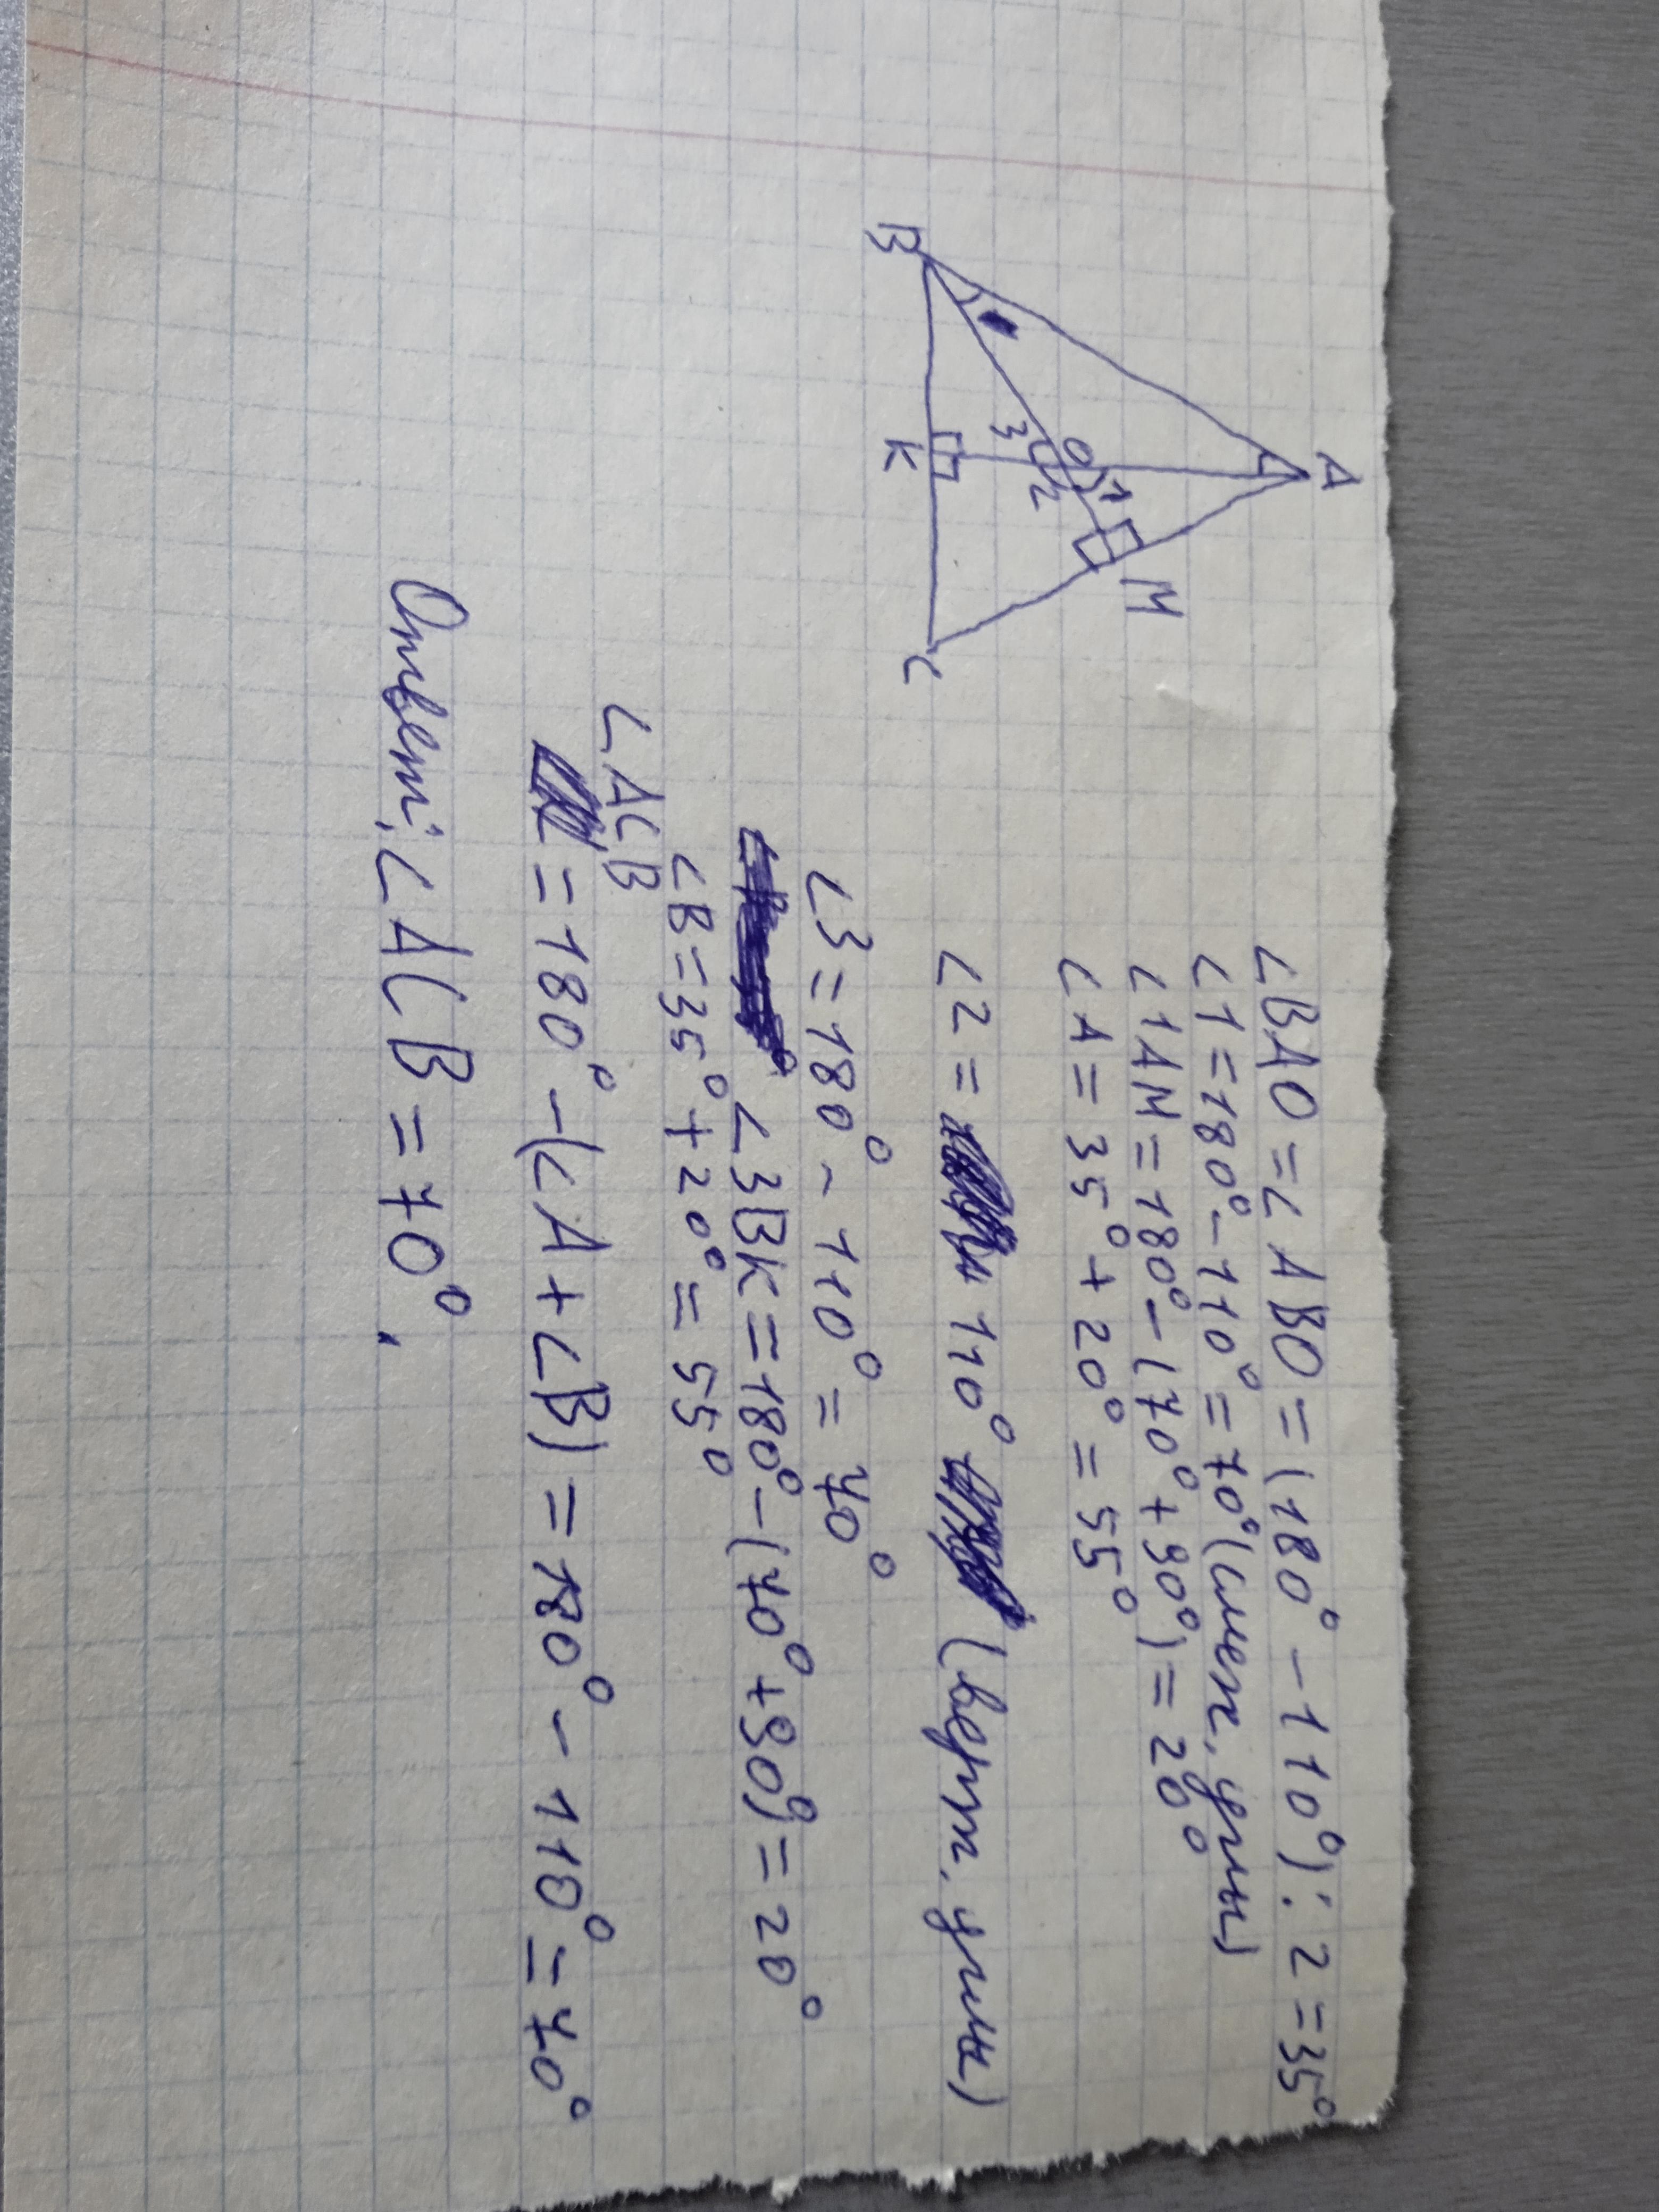 A
M
O
1
3
2
B
K
C
∠BAO = ∠ABO = (180° - 110°) : 2 = 35°
∠1 = 180° - 110° = 70° (смеж. углы)
∠1AM = 180° - (70° + 90°) = 20°
∠A = 35° + 20° = 55°
∠2 = 110° (верт. углы)
∠3 = 180° - 110° = 70°
∠3BK = 180° - (70° + 90°) = 20°
∠B = 35° + 20° = 55°
∠ACB
= 180° - (∠A + ∠B) = 180° - 110° = 70°
Ответ: ∠ACB = 70°.